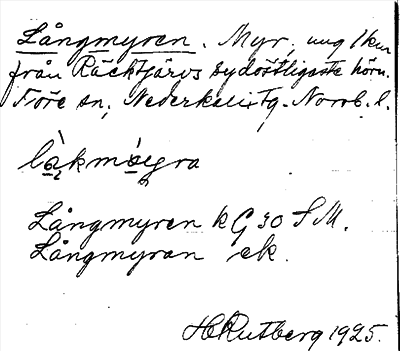 Långmyren. Myr, ung 1 km
från Räcktjärvs sydöstligaste hörn.
Töre sn, Nederkalix tg. Norrb. l.
Långmyren k G 30 S M.
Långmyran ek.
H Rutberg 1925.